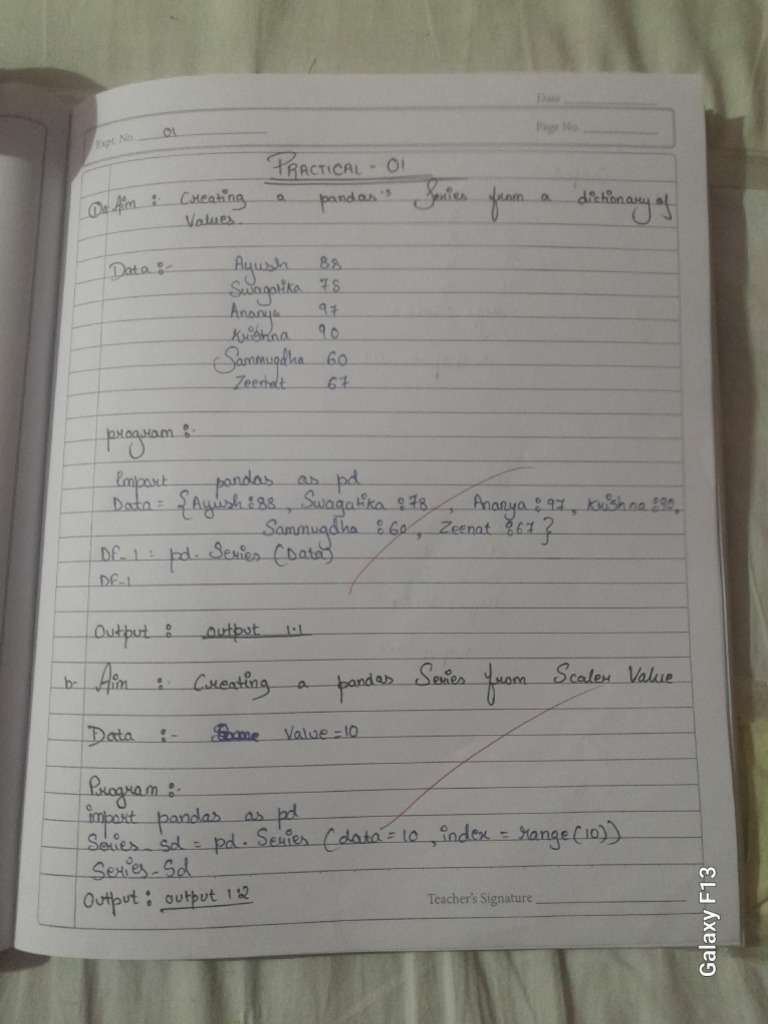 Date
Expt. No. 01
Page No.
PRACTICAL - 01
Aim : Creating a pandas's Series from a dictionary of
Values.
Data :-
Ayush 88
Swagatika 78
Ananya 97
Krishna 90
Sammugdha 60
Zeenat 67
program :-
Import pandas as pd
Data = {Ayush : 88 , Swagatika : 78 , Ananya : 97, Krishna : 90,
Sammugdha : 60 , Zeenat : 67 }
DF_1 = pd. Series (Data)
DF_1
Output : output 1.1
b- Aim : Creating a pandas Series from Scaler Value
Data :- Value = 10
Program :-
import pandas as pd
Series_sd = pd. Series (data = 10 , index = range(10))
Series_Sd
Output : output 1.2
Teacher's Signature
Galaxy F13